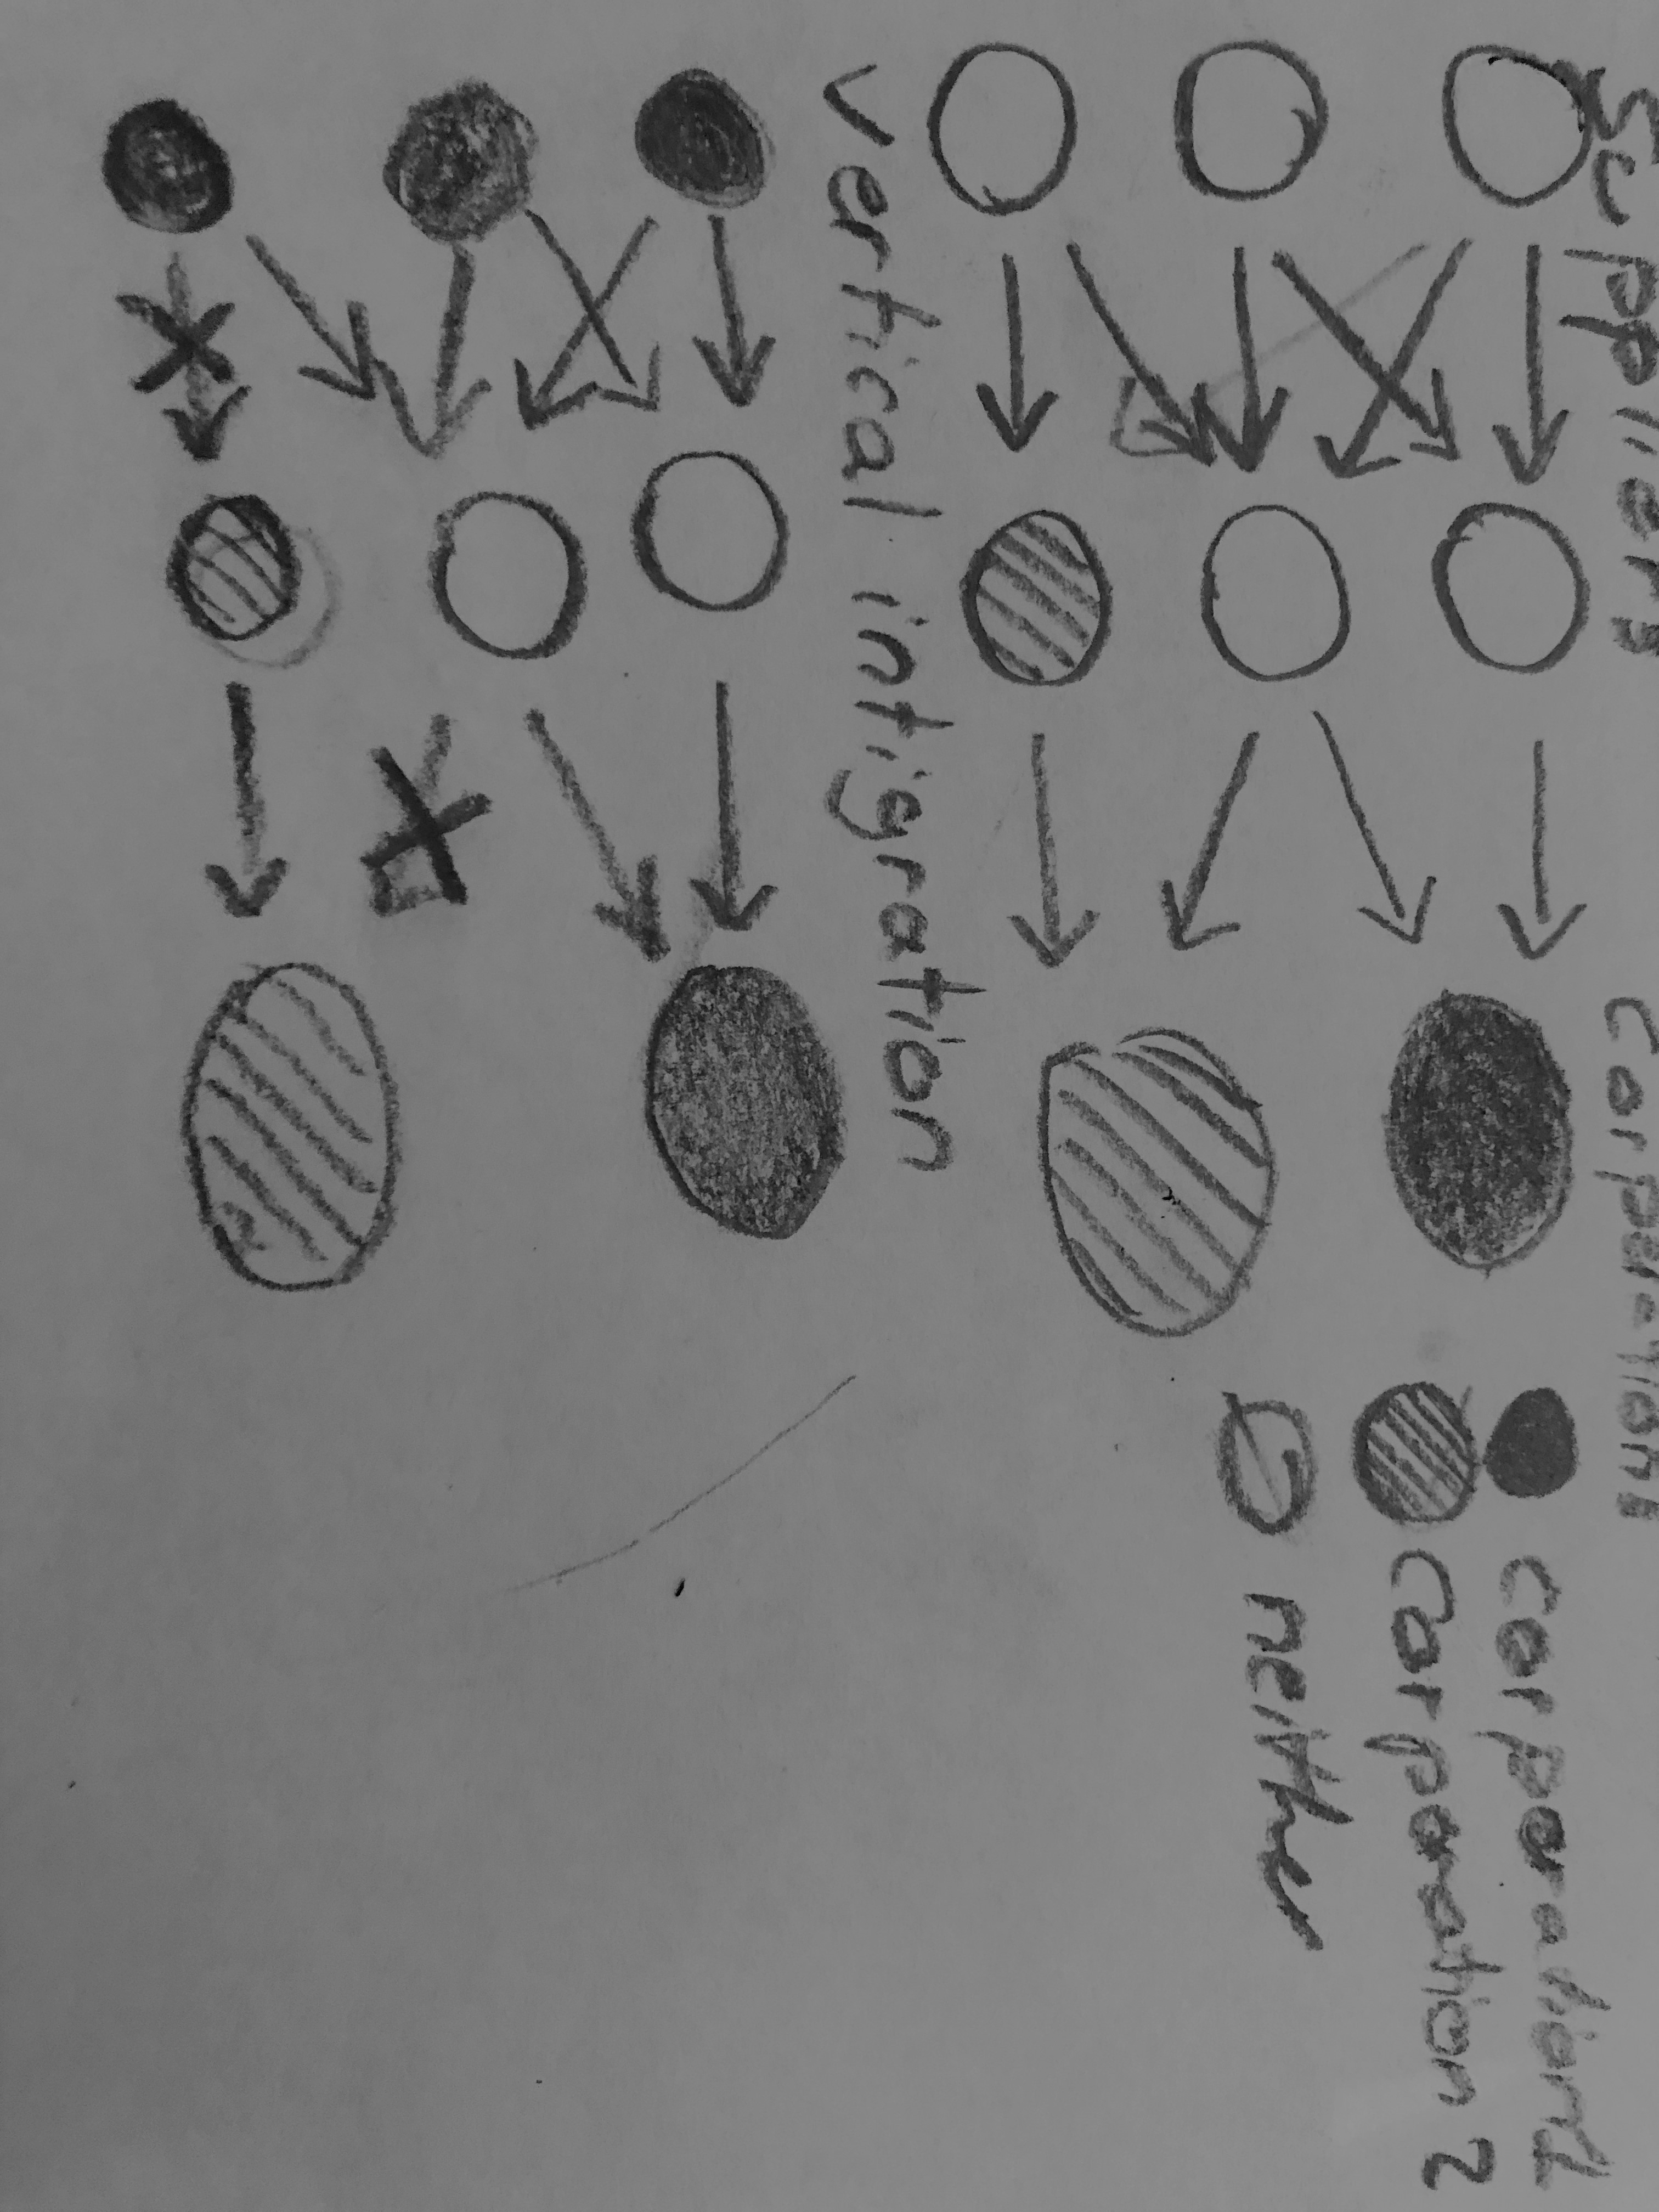 Suppliers
corporations
corporation 1
corporation 2
neither
vertical intigration